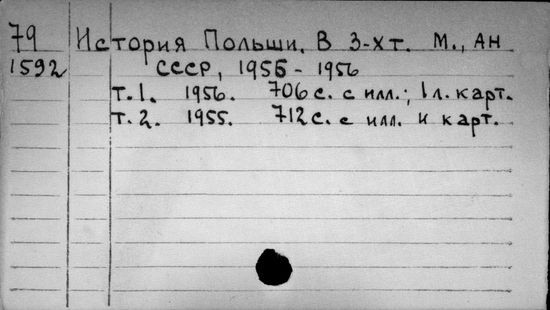 79 История Польши. В 3-хт. М., АН
1592 СССР, 1955 - 1956
т.1. 1956. 706 с. с илл.; 1 л. карт.
т.2. 1955. 712 с. с илл. и карт.